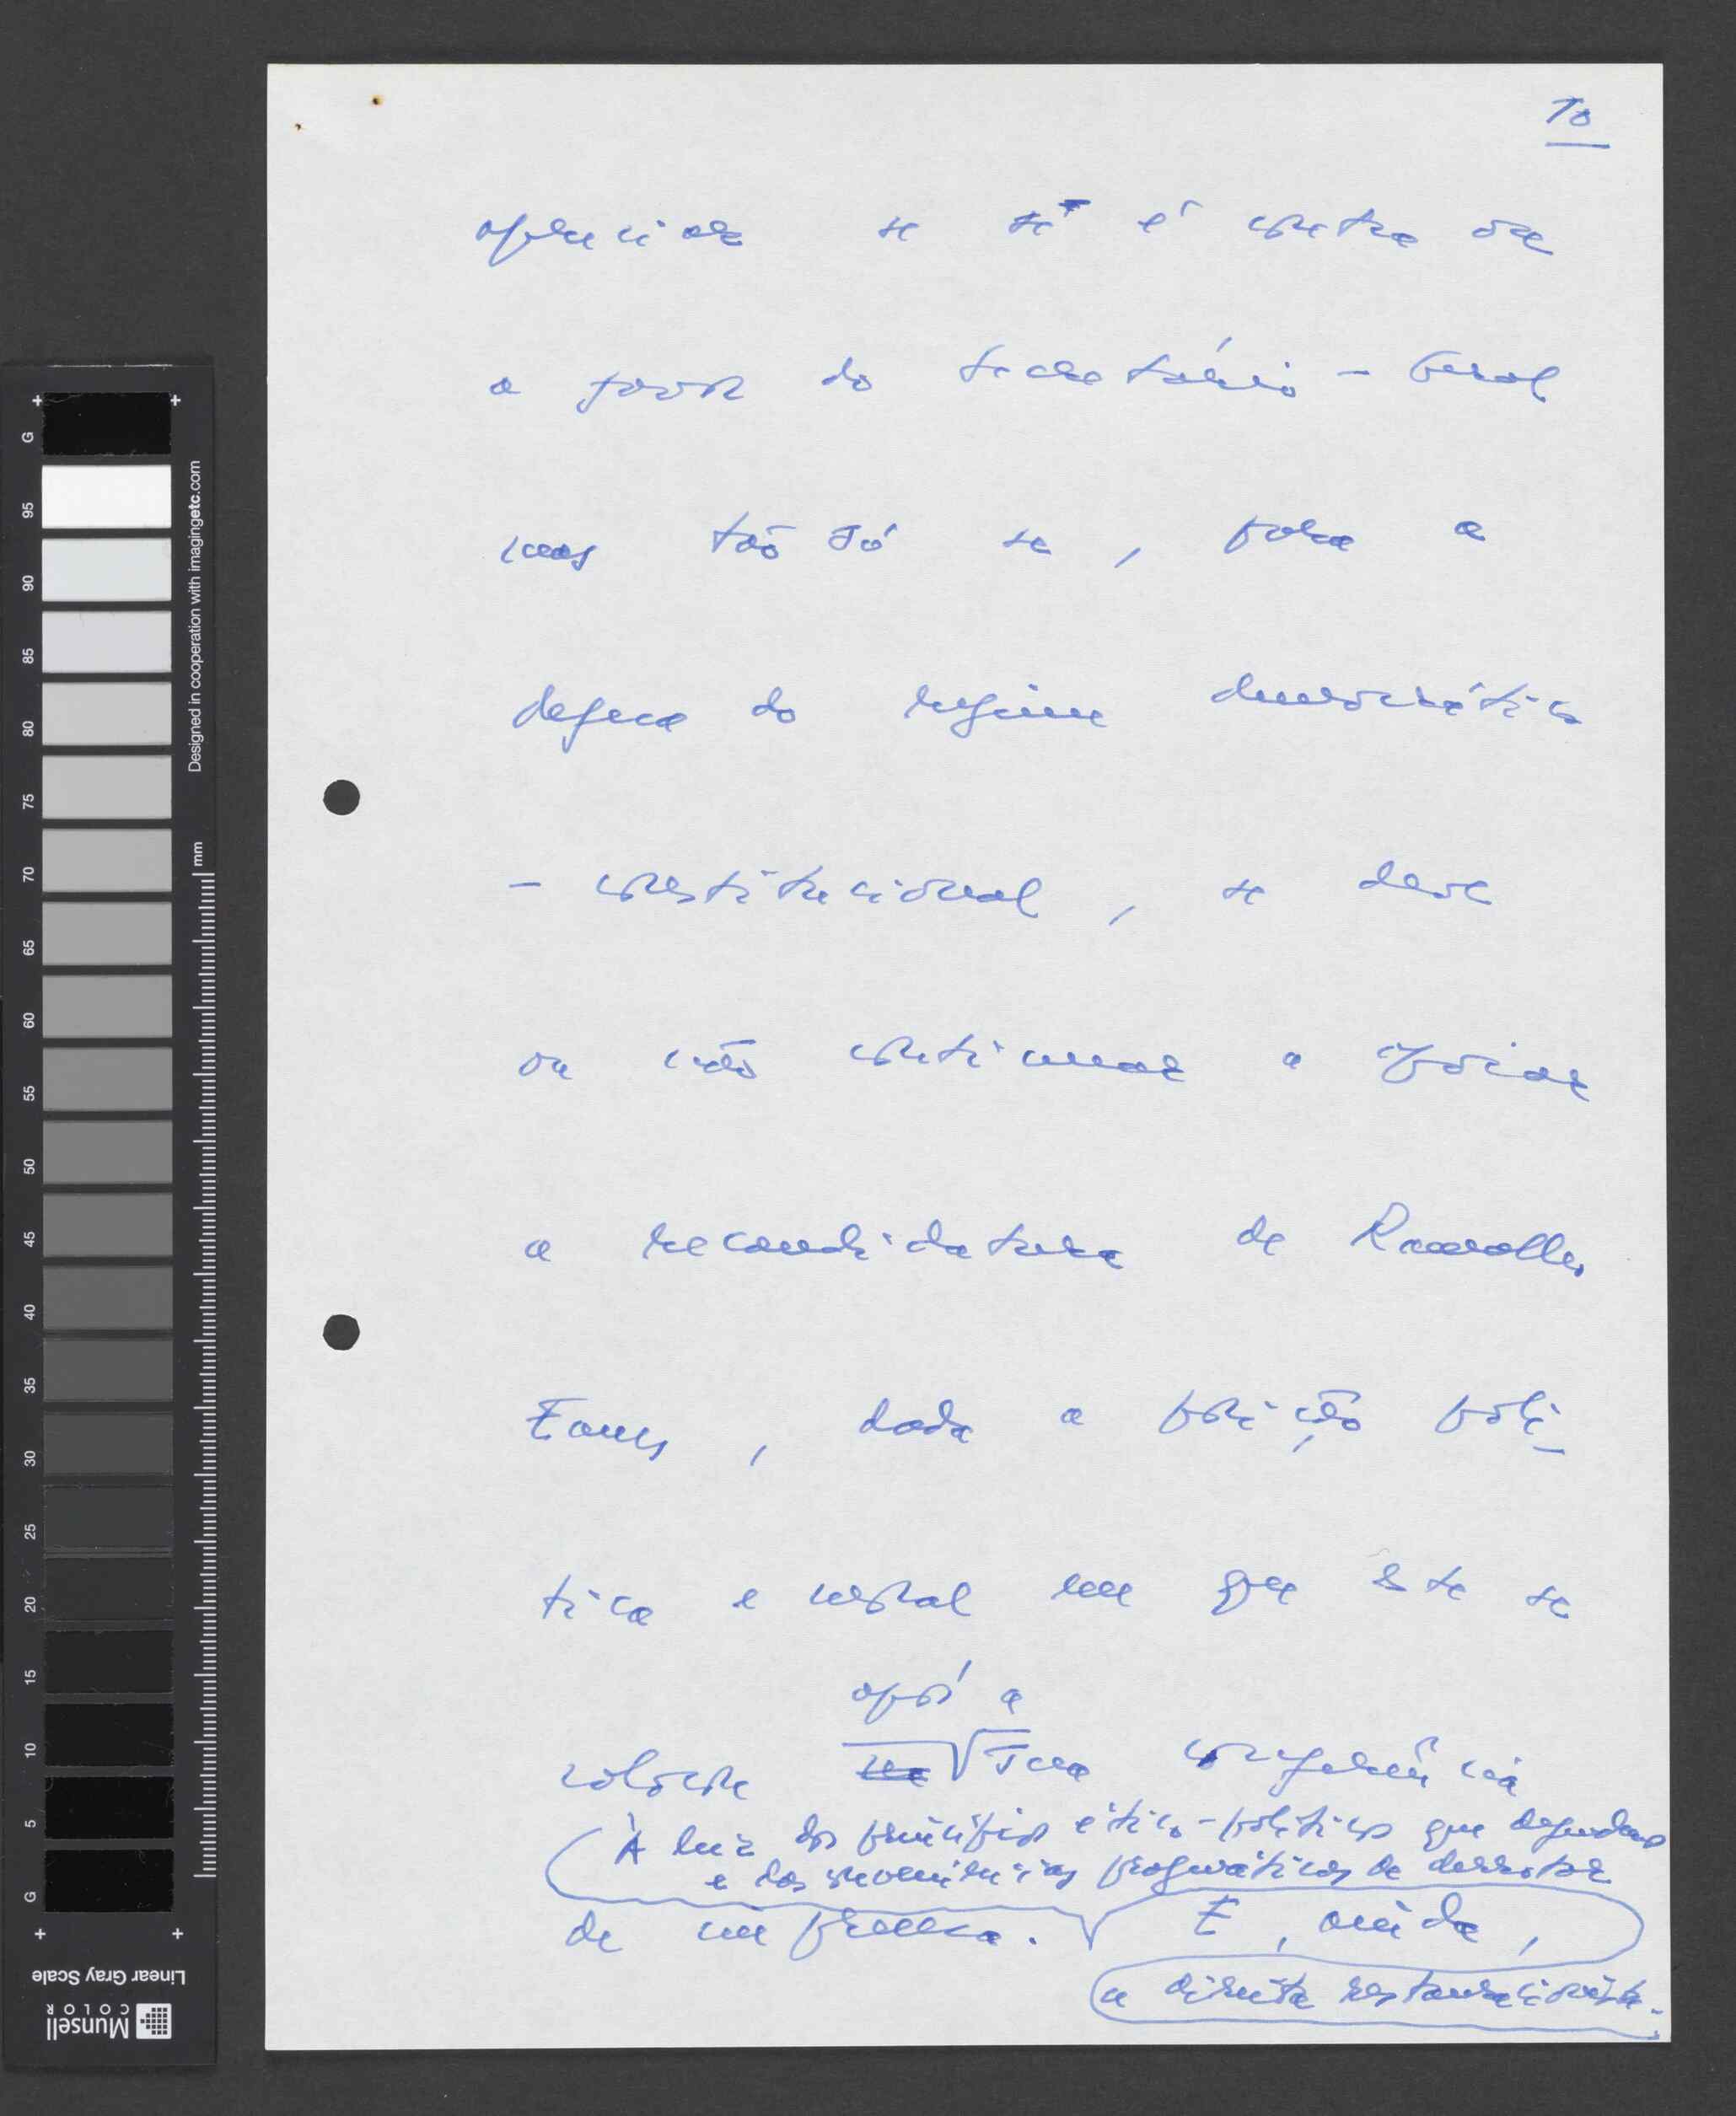 10
apreciar se se é contra ou
a favor do Secretário-Geral
mas tão só se, para a
defesa do regime democrático
- constitucional, se deve
ou não continuar a apoiar
a recandidatura de Ramalho
Eanes, dada a posição polí-
tica e moral em que este se
após a
colocou na sua conferência
À luz dos princípios ético-políticos que defendemos
e das conveniências pragmáticas de derrotar
de imprensa. E, ainda,
a direita restauracionista.
G 95 90 85 80 75 70 65 60 55 50 45 40 35 30 25 20 15 10 5 G
Designed in cooperation with imagingetc.com
mm
Linear Gray Scale
Munsell
COLOR